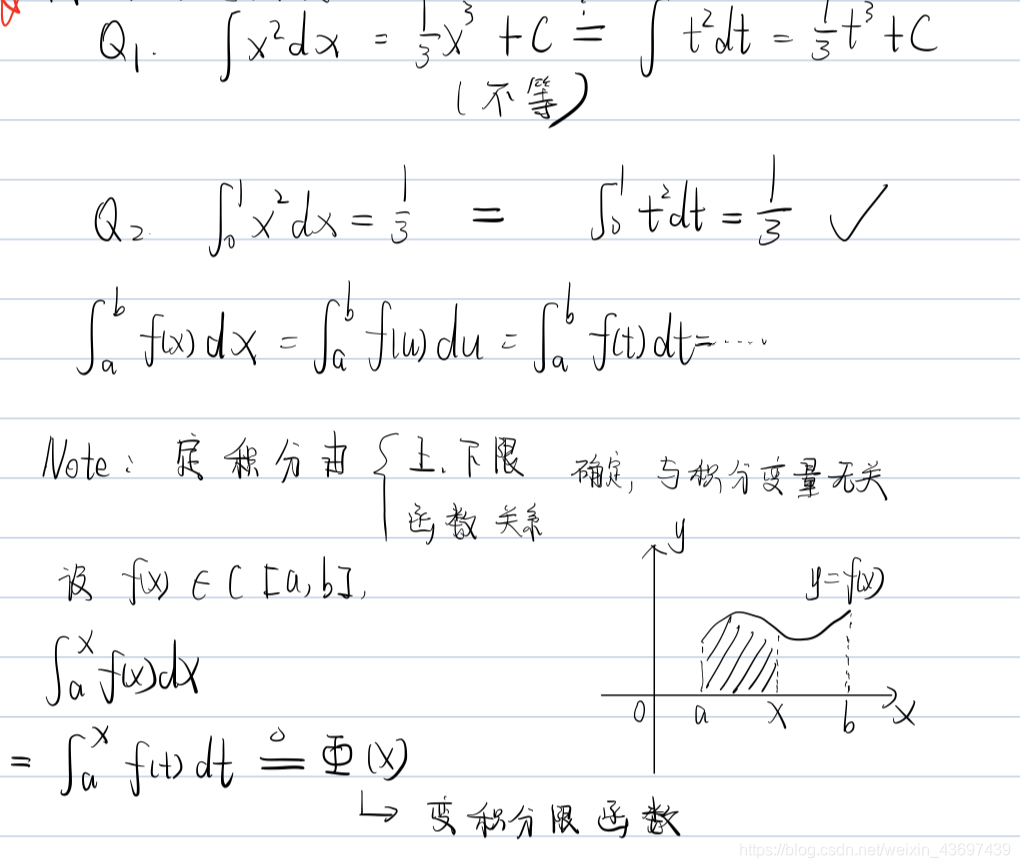 Q₁. ∫x²dx = ⅓x³ + C ≟ ∫t²dt = ⅓t³ + C
(不等)
Q₂. ∫₀¹ x²dx = ⅓ = ∫₀¹ t²dt = ⅓ ✓
∫ₐᵇ f(x)dx = ∫ₐᵇ f(u)du = ∫ₐᵇ f(t)dt = ·····
Note: 定积分由 { 上、下限 确定, 与积分变量无关
函数关系
y
设 f(x) ∈ C[a,b],
y=f(x)
∫ₐˣ f(x)dx
0 a x b x
= ∫ₐˣ f(t)dt ≙ Φ(x)
↳ 变积分限函数
https://blog.csdn.net/weixin_43697439